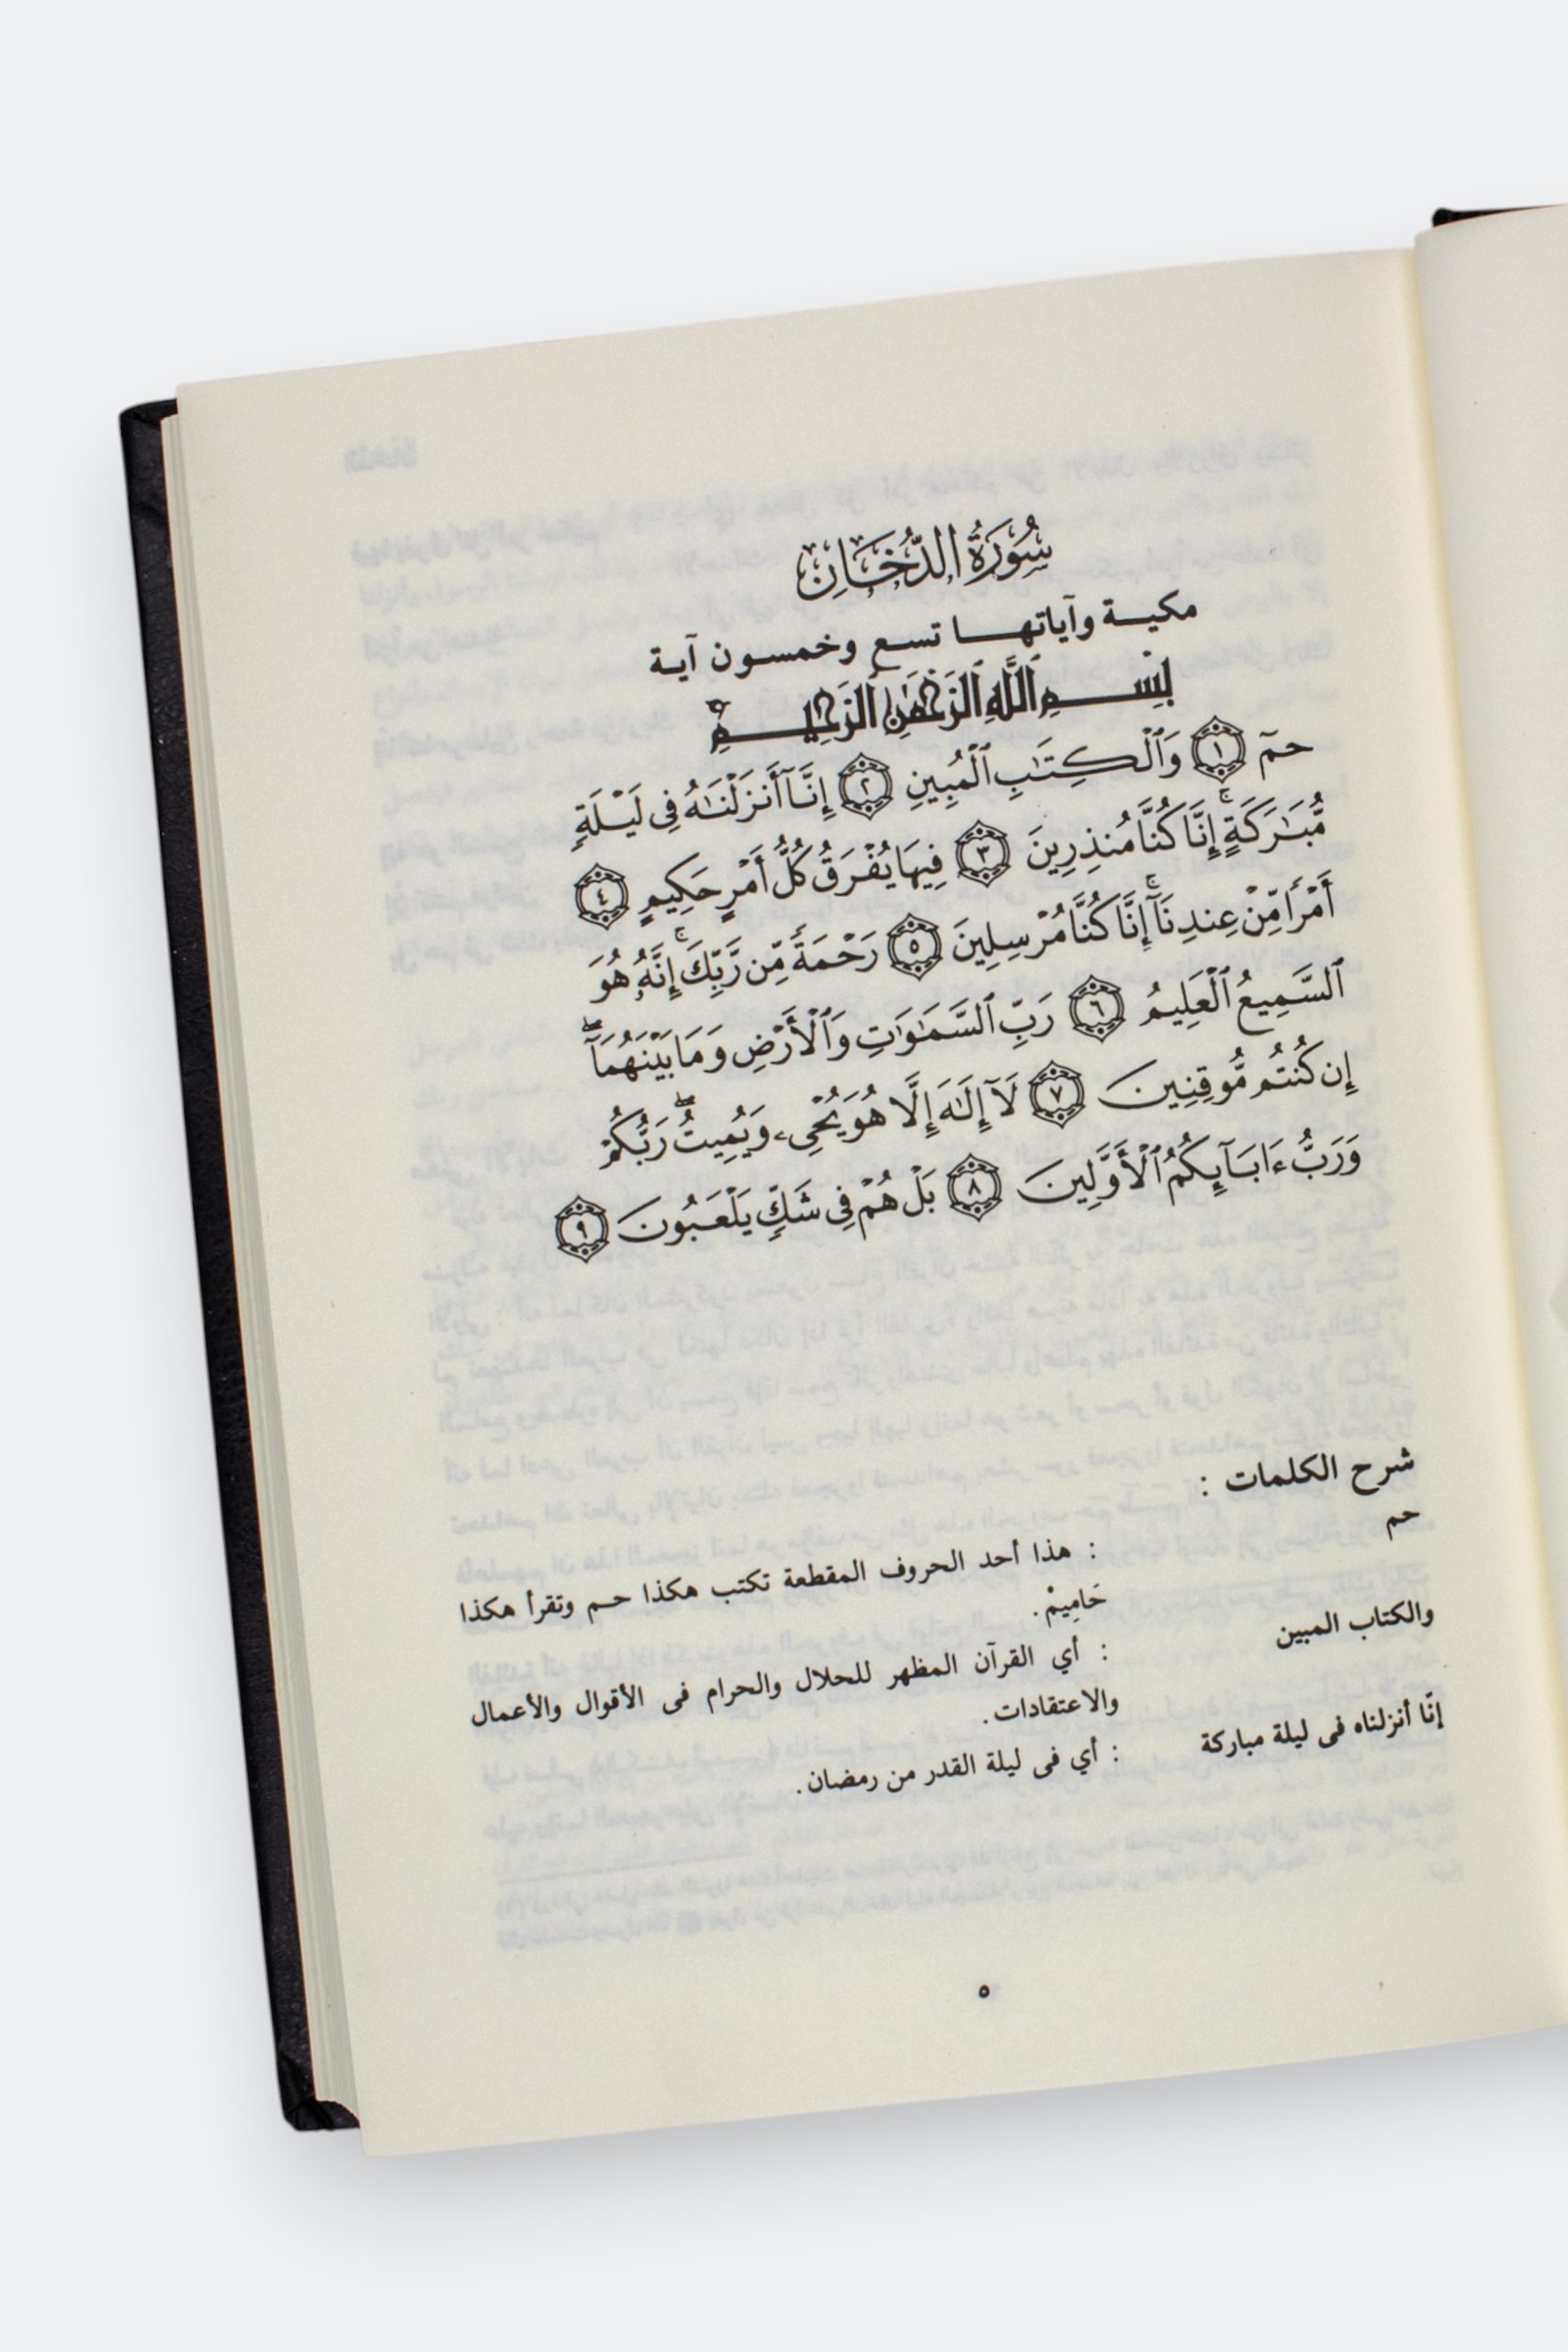 سُورَةُ الدُّخَانِ
مكيـة وآياتهـــا تسع وخمسون آية
بِسْـــمِ ٱللَّهِ ٱلرَّحْمَٰنِ ٱلرَّحِيـــمِ
حمٓ ١ وَٱلْكِتَٰبِ ٱلْمُبِينِ ٢ إِنَّآ أَنزَلْنَٰهُ فِى لَيْلَةٍ
مُّبَٰرَكَةٍ ۚ إِنَّا كُنَّا مُنذِرِينَ ٣ فِيهَا يُفْرَقُ كُلُّ أَمْرٍ حَكِيمٍ ٤
أَمْرًا مِّنْ عِندِنَآ ۚ إِنَّا كُنَّا مُرْسِلِينَ ٥ رَحْمَةً مِّن رَّبِّكَ ۚ إِنَّهُۥ هُوَ
ٱلسَّمِيعُ ٱلْعَلِيمُ ٦ رَبِّ ٱلسَّمَٰوَٰتِ وَٱلْأَرْضِ وَمَا بَيْنَهُمَآ ۖ
إِن كُنتُم مُّوقِنِينَ ٧ لَآ إِلَٰهَ إِلَّا هُوَ يُحْىِۦ وَيُمِيتُ ۖ رَبُّكُمْ
وَرَبُّ ءَابَآئِكُمُ ٱلْأَوَّلِينَ ٨ بَلْ هُمْ فِى شَكٍّ يَلْعَبُونَ ٩
شرح الكلمات :
حم : هذا أحد الحروف المقطعة تكتب هكذا حـم وتقرأ هكذا
حَامِيمْ .
والكتاب المبين : أي القرآن المظهر للحلال والحرام فى الأقوال والأعمال
والاعتقادات .
إنّا أنزلناه فى ليلة مباركة : أي فى ليلة القدر من رمضان .
٥